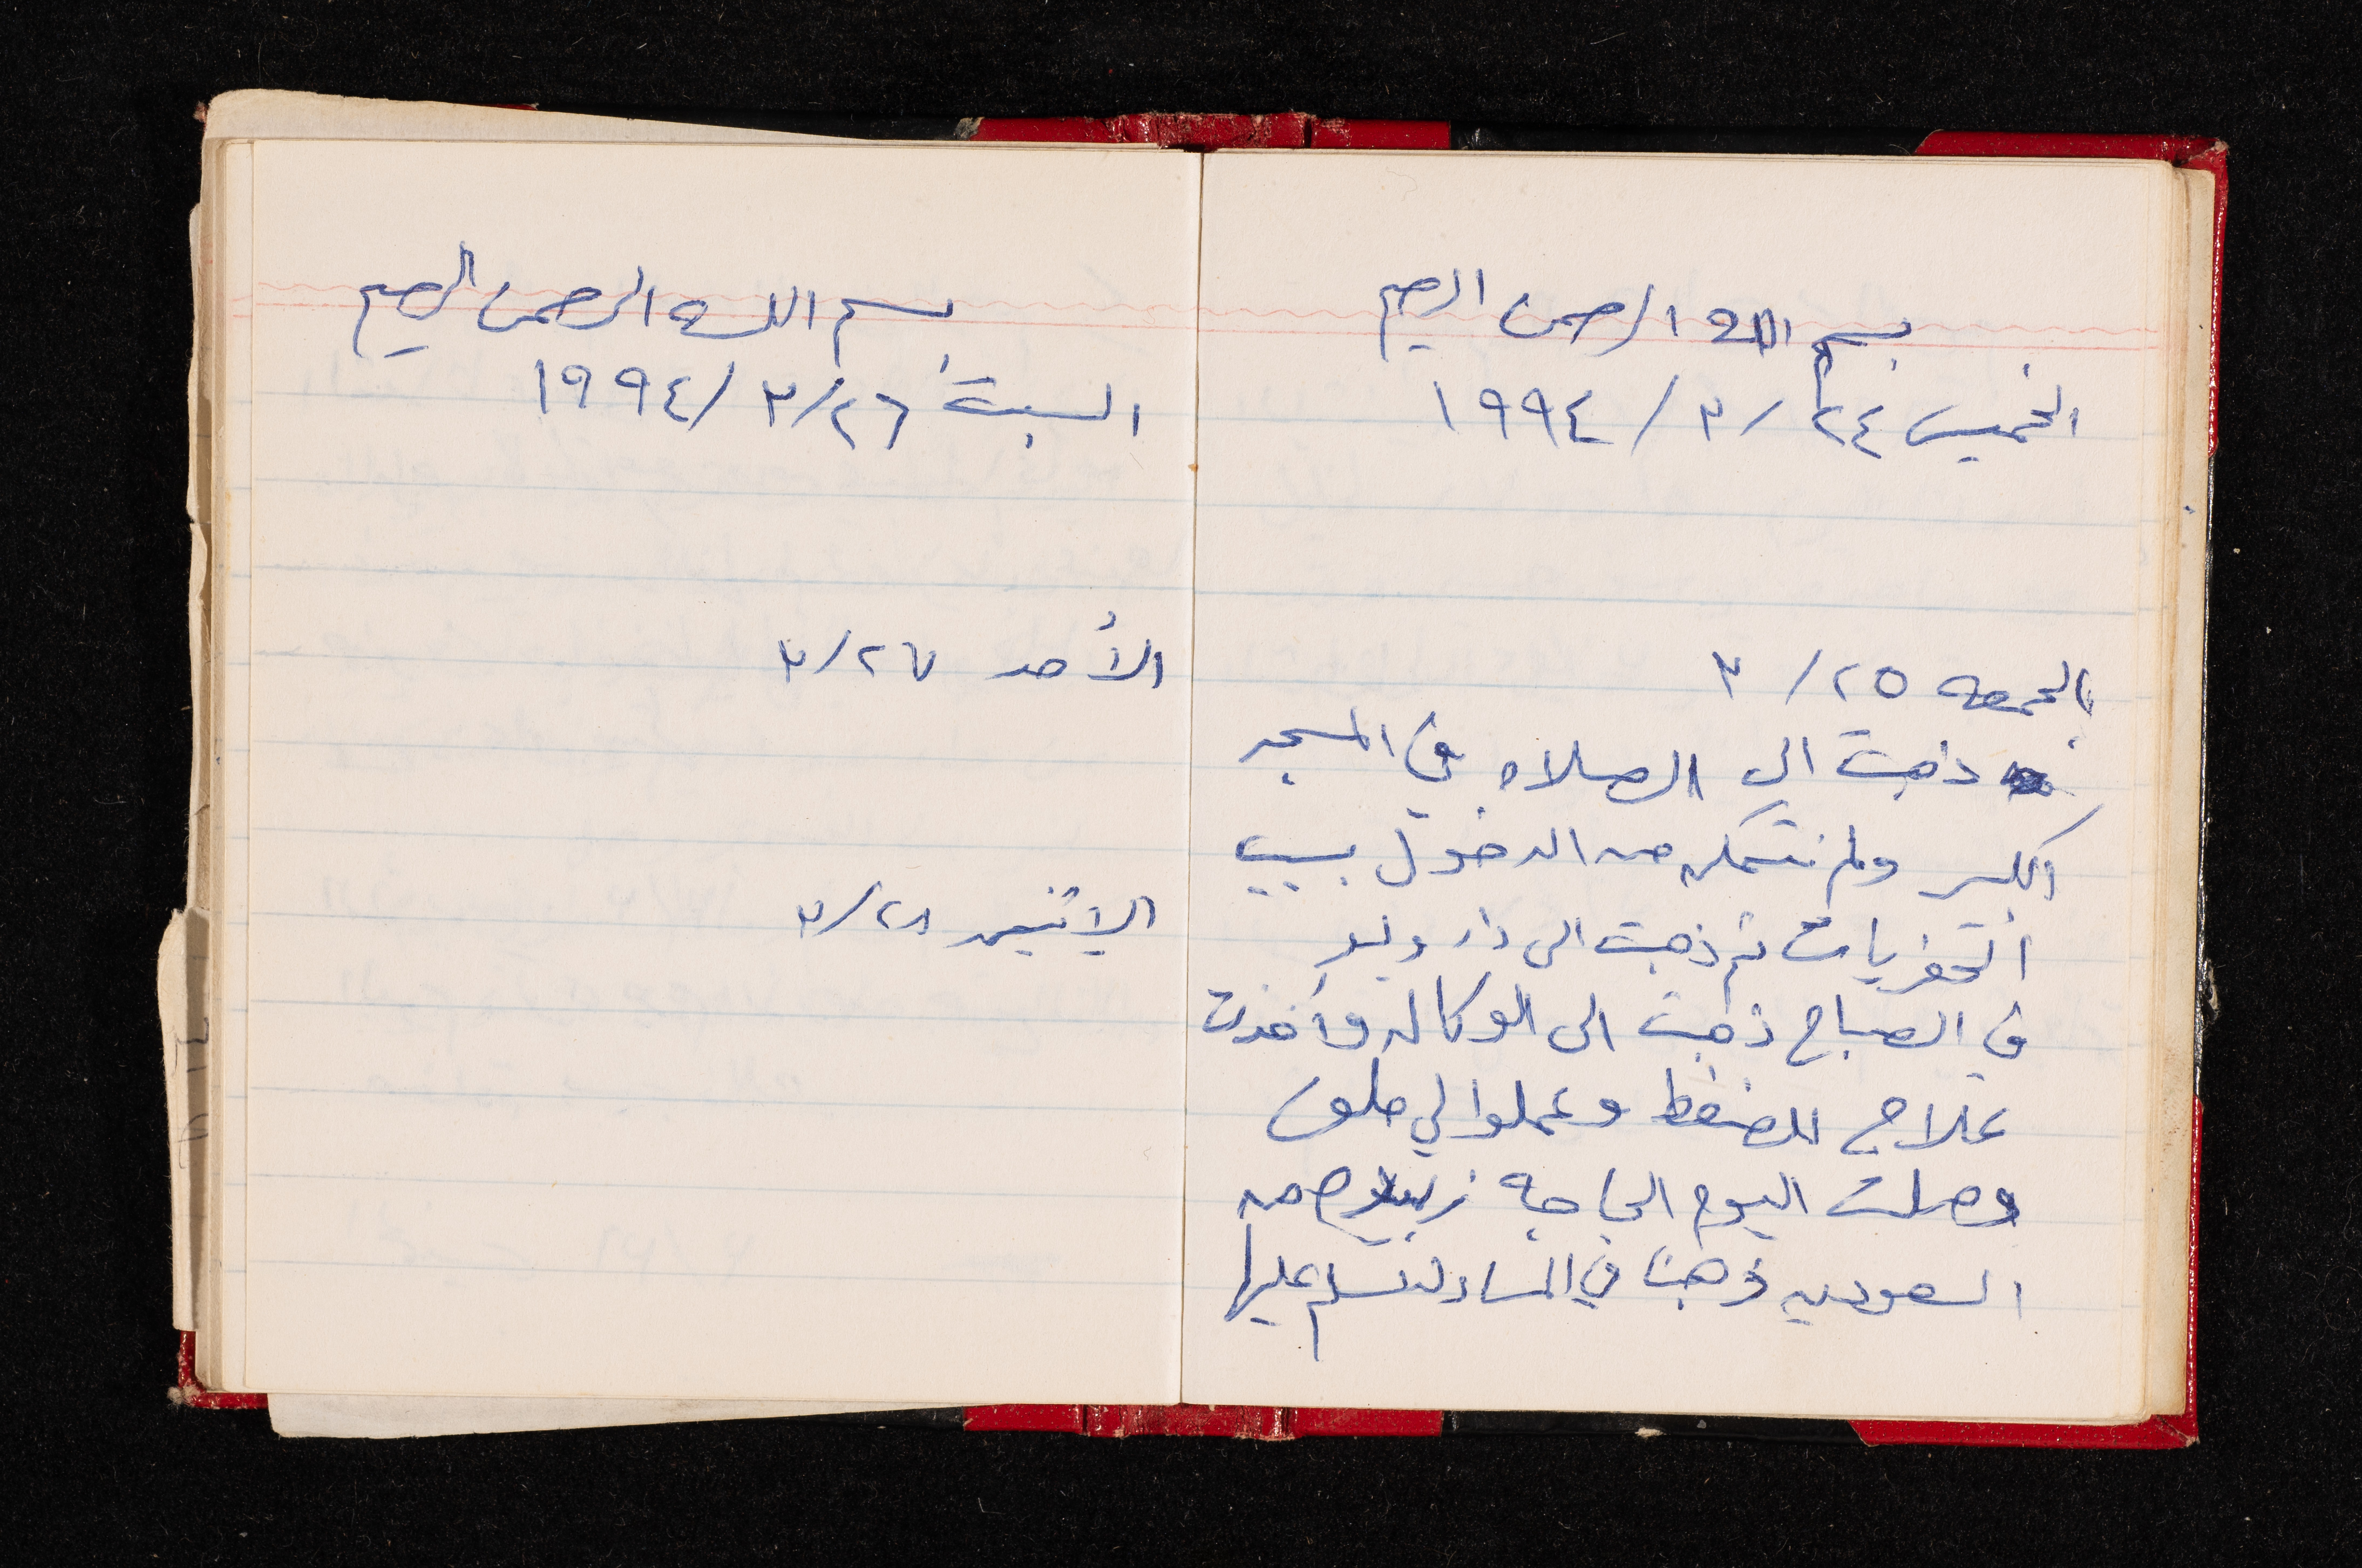 بسم الله الرحمن الرحيم
الخميس ٢٤/ ٣/ ١٩٩٤
الجمعه ٢٥/ ٣
ذهبت الى الصلاه في المسجد
الكبير ولم نتمكن من الدخول بسبب
الحفريات ثم ذهبت الى دار وليد
في الصباح ذهبت الى الوكاله وأخذت
علاج للضغط وعملوا لي ملف
وصلت اليوم الحاجه من
السعوديه ذهبنا في المساء لنسلم عليها
بسم الله الرحمن الرحيم
السبت ٢٦/ ٣/ ١٩٩٤
الأحد ٢٧/ ٣
الإثنين ٢٨/ ٣